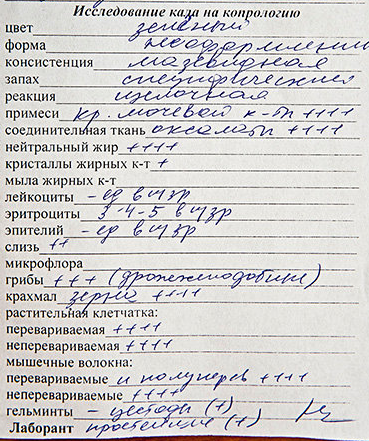 Исследование кала на копрологию
цвет зелёный
форма неоформленный
консистенция мазевидная
запах специфический
реакция щелочная
примеси кр. мочевой к-ты ++++
соединительная ткань оксалаты ++++
нейтральный жир ++++
кристаллы жирных к-т +
мыла жирных к-т
лейкоциты - ед в п/зр
эритроциты 3-4-5 в п/зр
эпителий - ед в п/зр
слизь ++
микрофлора
грибы +++ (дрожжеподобные)
крахмал зерна ++++
растительная клетчатка:
перевариваемая ++++
неперевариваемая ++++
мышечные волокна:
перевариваемые и полуперев ++++
неперевариваемые ++++
гельминты - цестоды (+)
Лаборант простейшие (+)